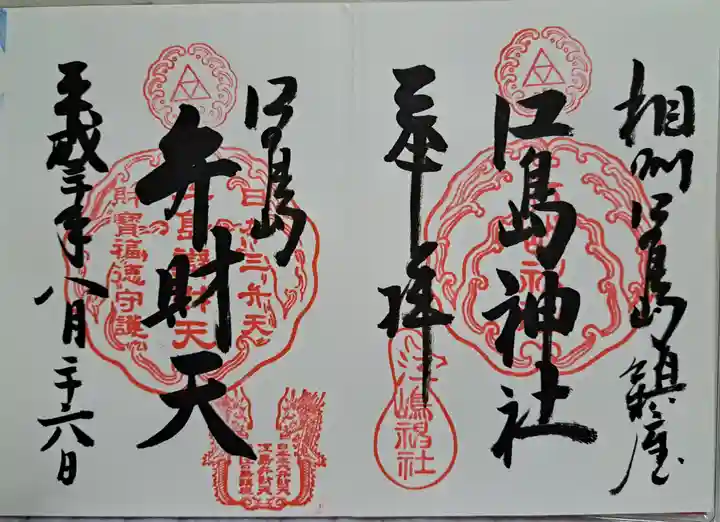 相州江島鎮座
江島神社
奉拝
江嶋神社
江島
弁財天
平成三十年八月二十六日
財寶福徳守護